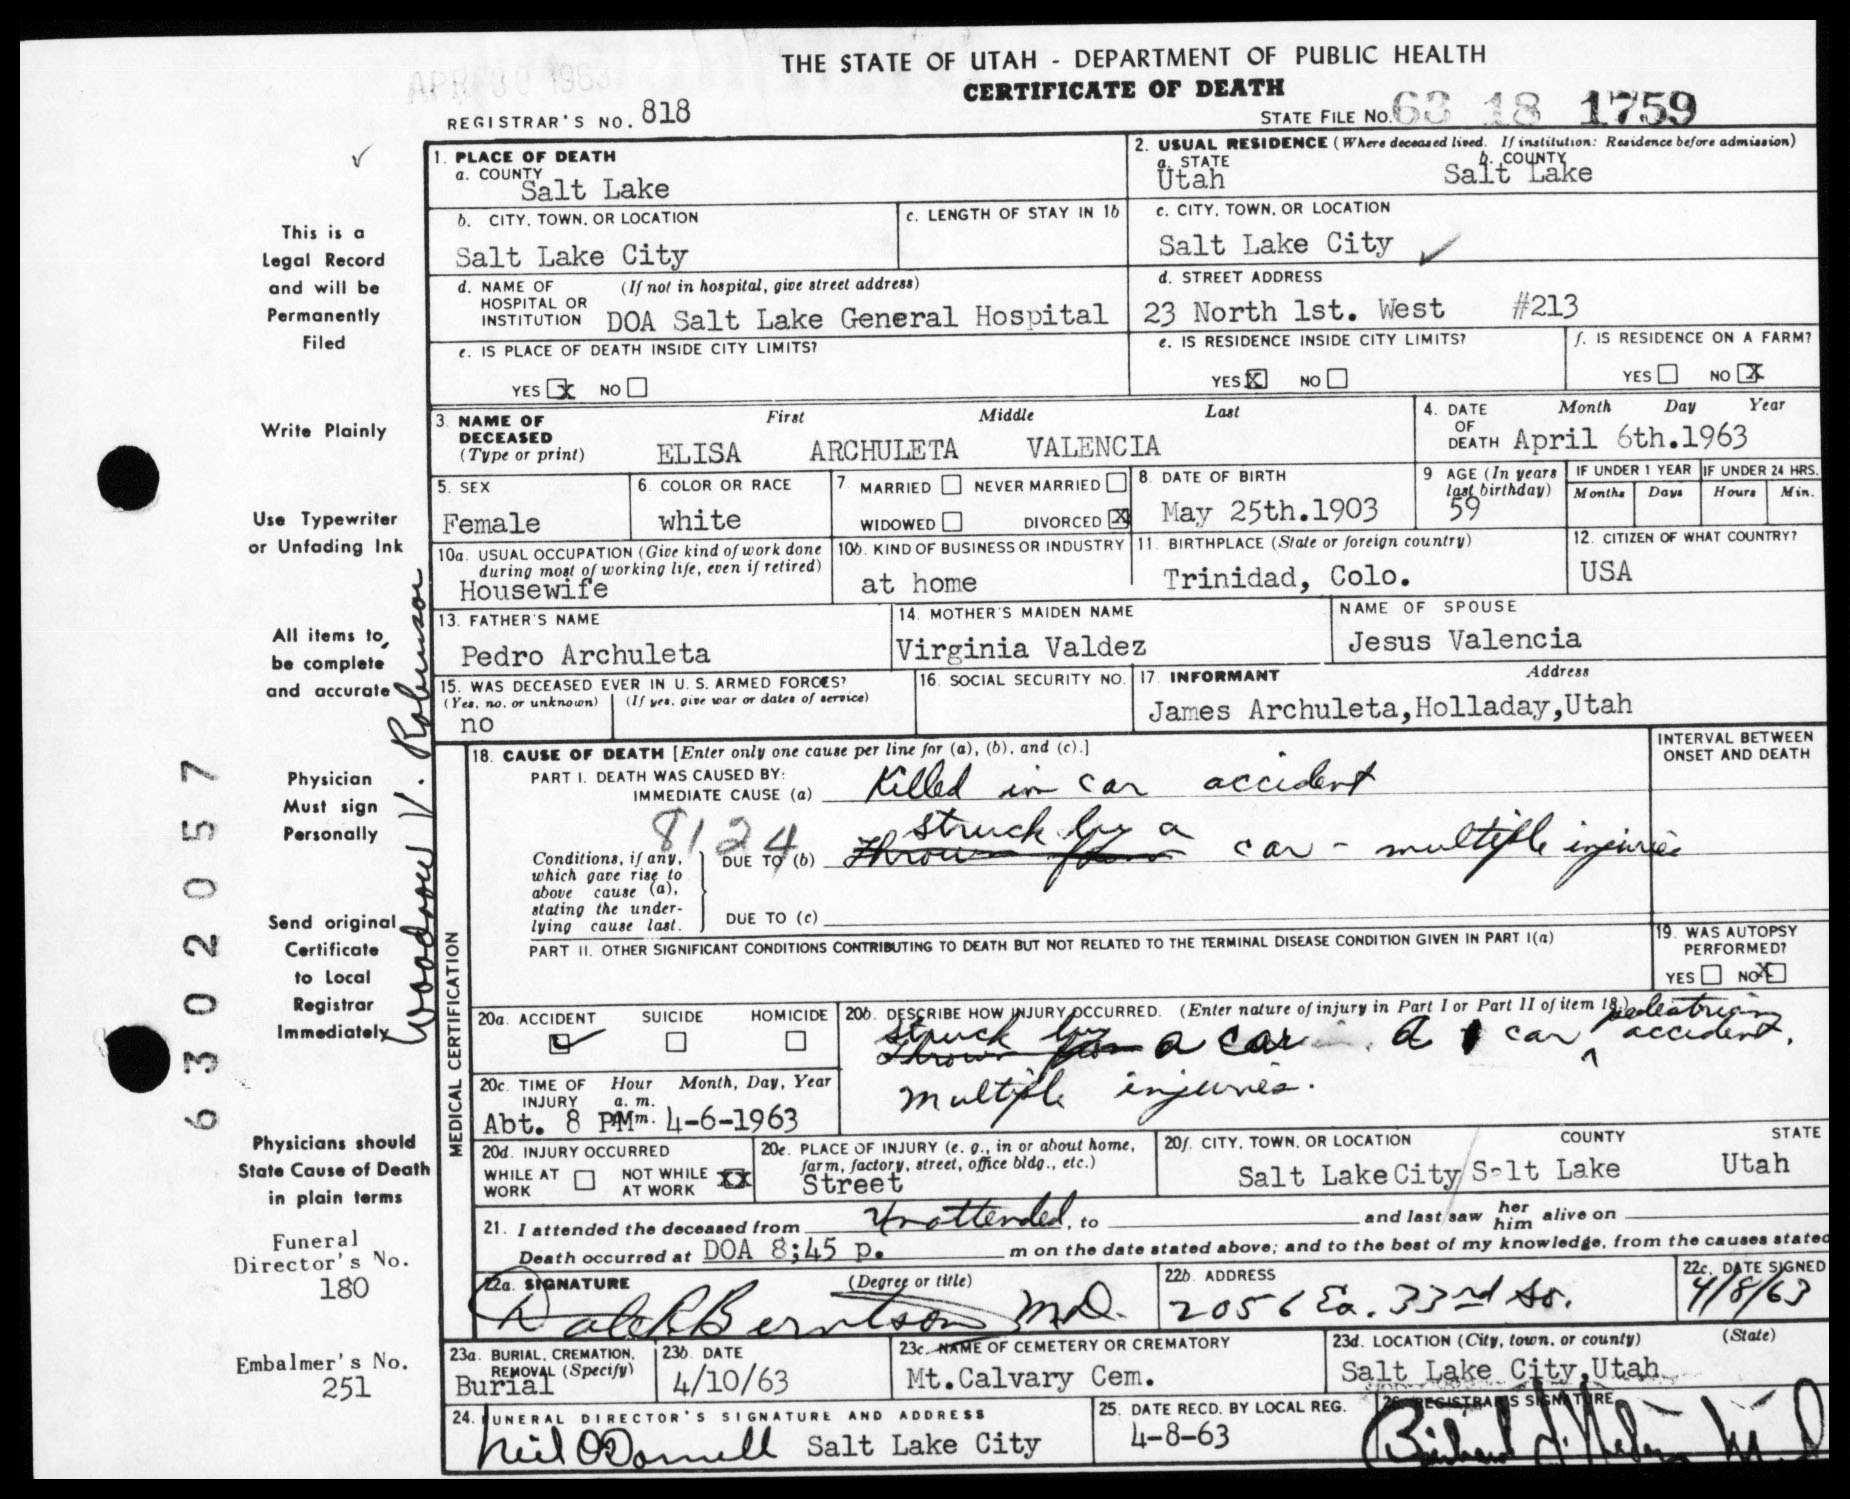 THE STATE OF UTAH - DEPARTMENT OF PUBLIC HEALTH
CERTIFICATE OF DEATH
APR 30 1963
REGISTRAR'S NO. 818
STATE FILE NO. 63 18 1759
1. PLACE OF DEATH
a. COUNTY
Salt Lake
2. USUAL RESIDENCE (Where deceased lived. If institution: Residence before admission)
a. STATE b. COUNTY
Utah Salt Lake
b. CITY, TOWN, OR LOCATION
Salt Lake City
c. LENGTH OF STAY IN 1b
c. CITY, TOWN, OR LOCATION
Salt Lake City
d. NAME OF (If not in hospital, give street address)
HOSPITAL OR
INSTITUTION DOA Salt Lake General Hospital
d. STREET ADDRESS
23 North 1st. West #213
e. IS PLACE OF DEATH INSIDE CITY LIMITS?
YES X NO
e. IS RESIDENCE INSIDE CITY LIMITS?
YES X NO
f. IS RESIDENCE ON A FARM?
YES NO X
3. NAME OF First Middle Last
DECEASED
(Type or print) ELISA ARCHULETA VALENCIA
4. DATE Month Day Year
OF
DEATH April 6th.1963
5. SEX
Female
6. COLOR OR RACE
white
7. MARRIED NEVER MARRIED
WIDOWED DIVORCED X
8. DATE OF BIRTH
May 25th.1903
9 AGE (In years
last birthday)
59
IF UNDER 1 YEAR IF UNDER 24 HRS.
Months Days Hours Min.
10a. USUAL OCCUPATION (Give kind of work done
during most of working life, even if retired)
Housewife
10b. KIND OF BUSINESS OR INDUSTRY
at home
11. BIRTHPLACE (State or foreign country)
Trinidad, Colo.
12. CITIZEN OF WHAT COUNTRY?
USA
13. FATHER'S NAME
Pedro Archuleta
14. MOTHER'S MAIDEN NAME
Virginia Valdez
NAME OF SPOUSE
Jesus Valencia
15. WAS DECEASED EVER IN U. S. ARMED FORCES?
(Yes, no, or unknown) (If yes, give war or dates of service)
no
16. SOCIAL SECURITY NO.
17. INFORMANT Address
James Archuleta,Holladay,Utah
MEDICAL CERTIFICATION
18. CAUSE OF DEATH [Enter only one cause per line for (a), (b), and (c).]
PART I. DEATH WAS CAUSED BY:
IMMEDIATE CAUSE (a) Killed in car accident
INTERVAL BETWEEN
ONSET AND DEATH
8124
struck by a
Conditions, if any,
which gave rise to
above cause (a),
stating the under-
lying cause last.
DUE TO (b) Thrown from car - multiple injuries
DUE TO (c)
PART II. OTHER SIGNIFICANT CONDITIONS CONTRIBUTING TO DEATH BUT NOT RELATED TO THE TERMINAL DISEASE CONDITION GIVEN IN PART I(a)
19. WAS AUTOPSY
PERFORMED?
YES NO X
20a. ACCIDENT SUICIDE HOMICIDE
20b. DESCRIBE HOW INJURY OCCURRED. (Enter nature of injury in Part I or Part II of item 18.)
struck by pedestrian
Thrown from a car a 1 car accident.
multiple injuries.
20c. TIME OF Hour Month, Day, Year
INJURY a. m.
Abt. 8 PM m. 4-6-1963
20d. INJURY OCCURRED
WHILE AT WORK NOT WHILE AT WORK XX
20e. PLACE OF INJURY (e. g., in or about home,
farm, factory, street, office bldg., etc.)
Street
20f. CITY, TOWN, OR LOCATION COUNTY STATE
Salt Lake City Salt Lake Utah
21. I attended the deceased from Unattended, to and last saw her him alive on
Death occurred at DOA 8;45 p. m on the date stated above; and to the best of my knowledge, from the causes stated
22a. SIGNATURE (Degree or title)
Dale R Berntson M.D.
22b. ADDRESS
2056 Ea. 33rd So.
22c. DATE SIGNED
4/8/63
23a. BURIAL, CREMATION,
REMOVAL (Specify)
Burial
23b. DATE
4/10/63
23c. NAME OF CEMETERY OR CREMATORY
Mt.Calvary Cem.
23d. LOCATION (City, town, or county) (State)
Salt Lake City,Utah
24. FUNERAL DIRECTOR'S SIGNATURE AND ADDRESS
Neil O'Donnell Salt Lake City
25. DATE RECD. BY LOCAL REG.
4-8-63
26. REGISTRAR'S SIGNATURE
This is a
Legal Record
and will be
Permanently
Filed
Write Plainly
Use Typewriter
or Unfading Ink
All items to
be complete
and accurate
Physician
Must sign
Personally
Send original
Certificate
to Local
Registrar
Immediately
Physicians should
State Cause of Death
in plain terms
Funeral
Director's No.
180
Embalmer's No.
251
Woodrow V. Robinson
6302057